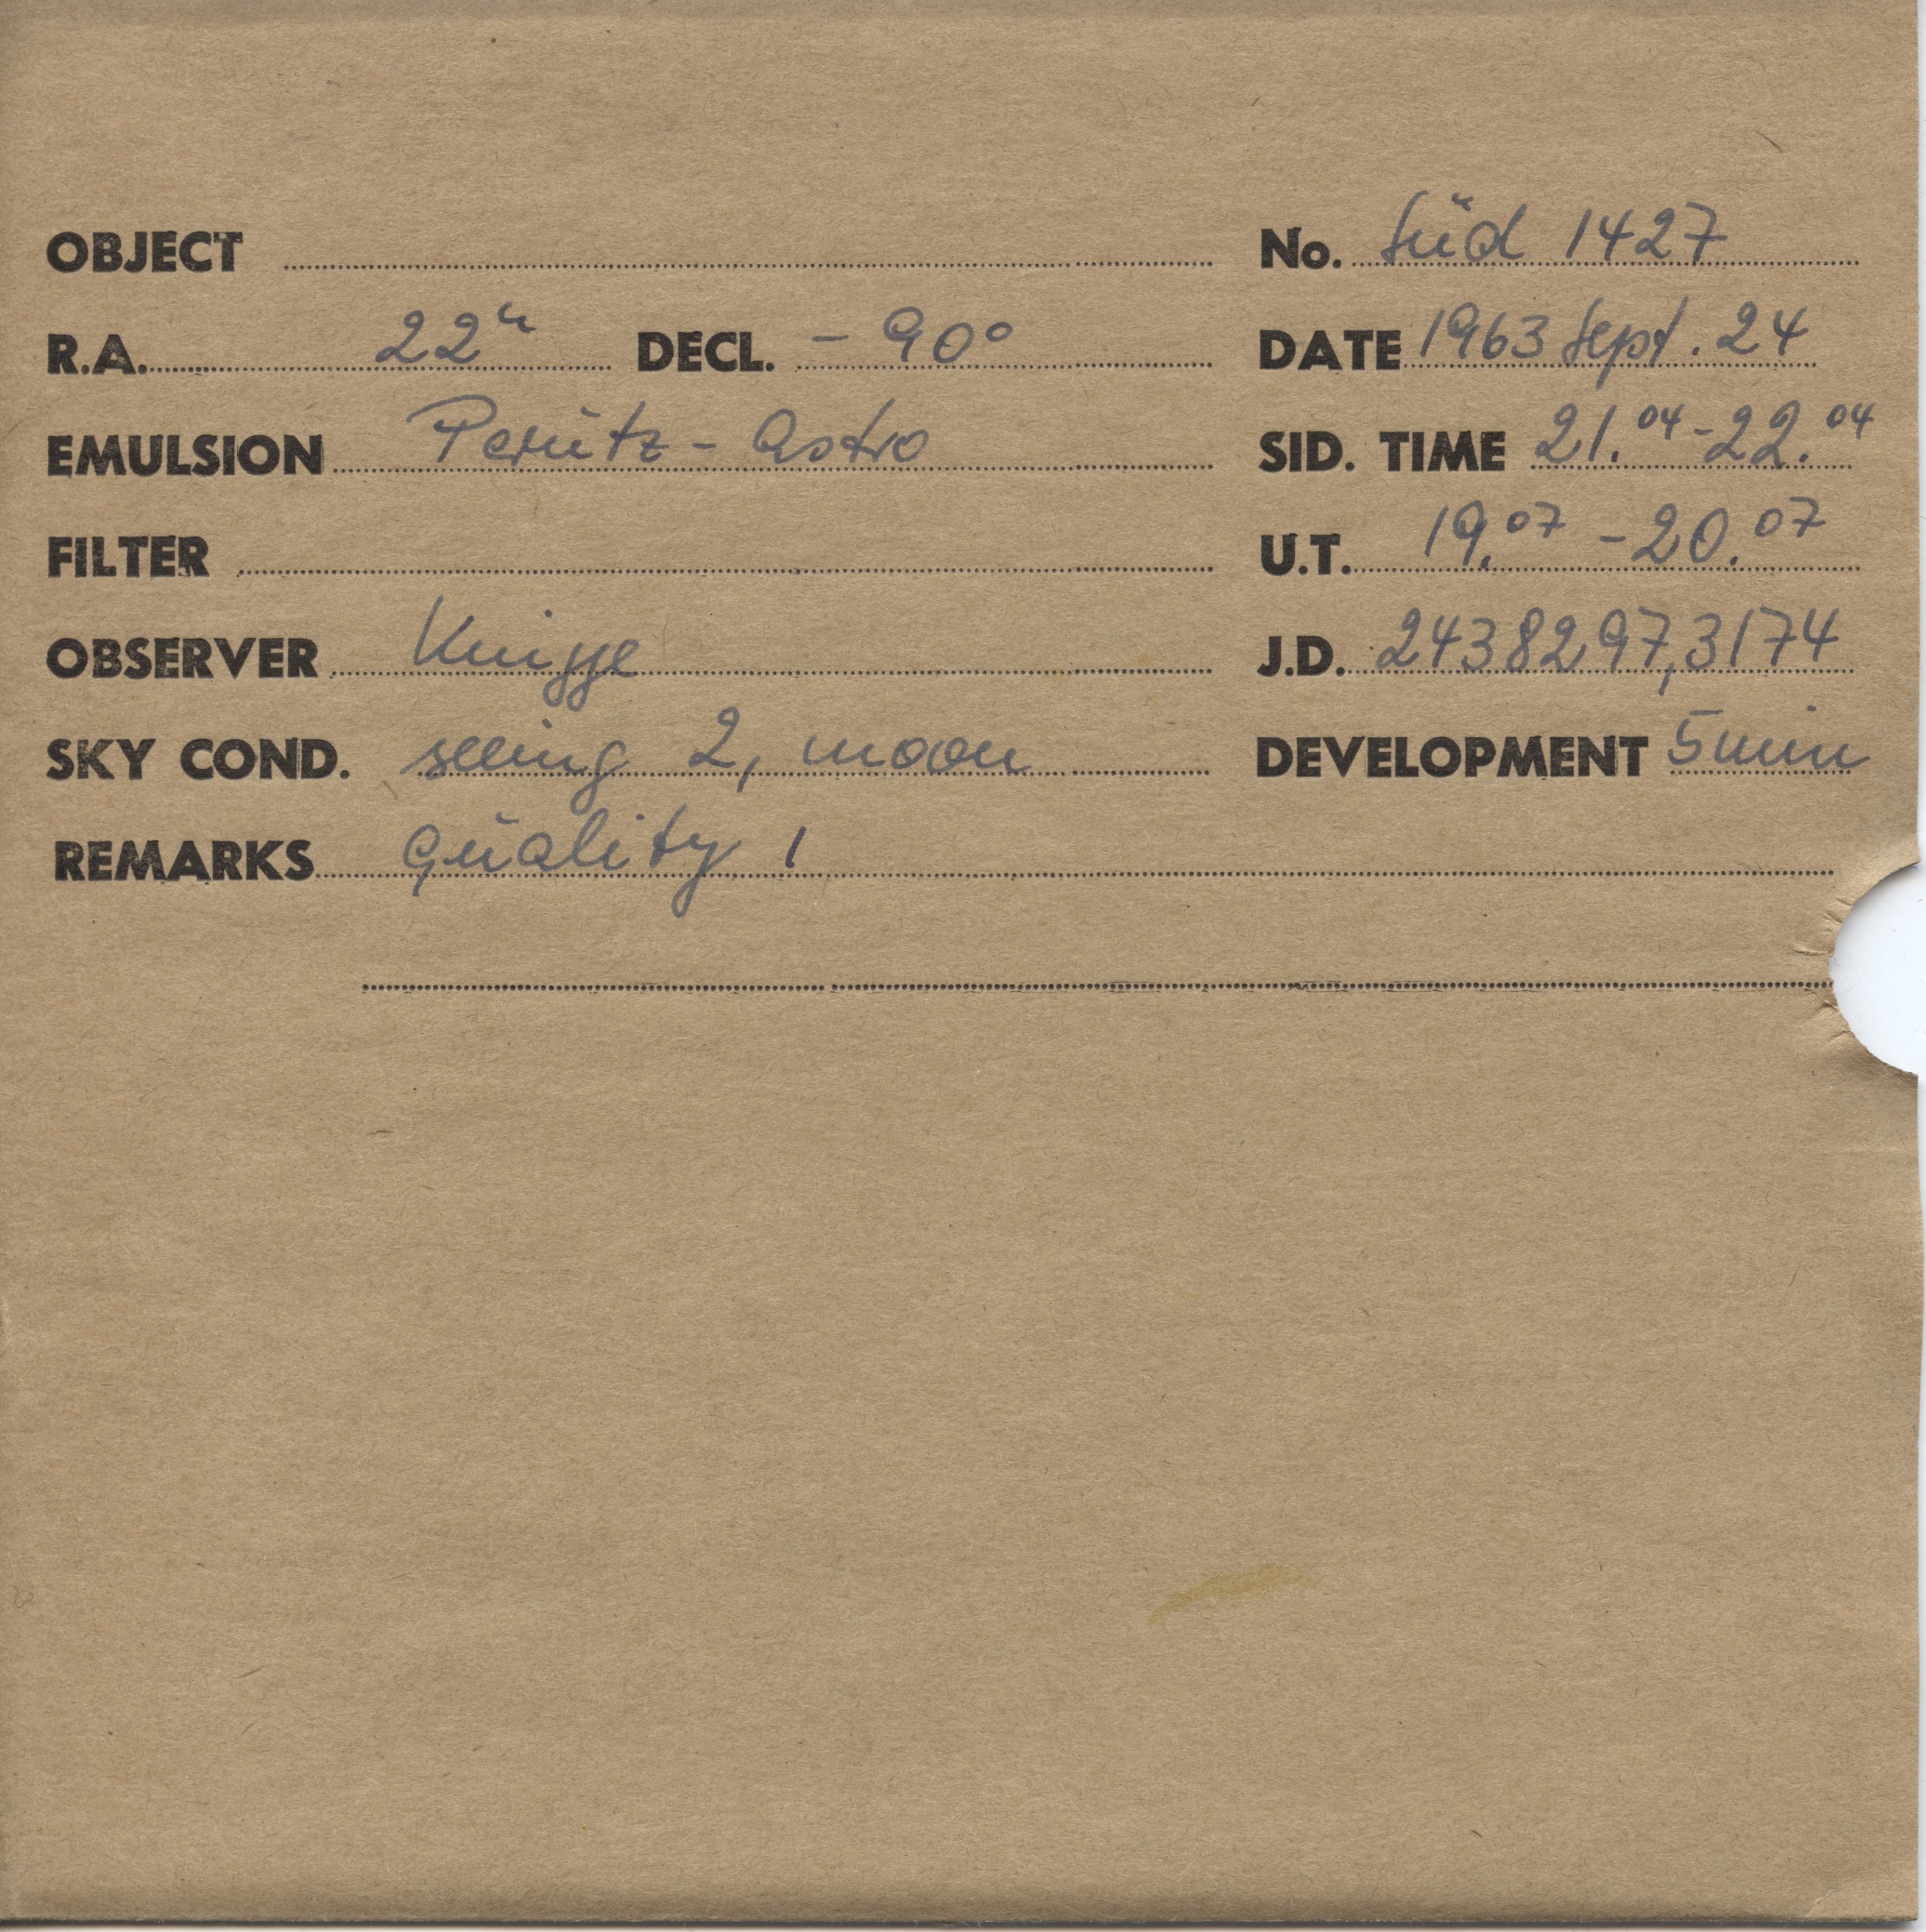 OBJECT No. Süd 1427
R.A. 22h DECL. - 90°
DATE 1963 Sept. 24
EMULSION Perutz - Astro
SID. TIME 21.04 - 22.04
FILTER
U.T. 19.07 - 20.07
OBSERVER Knigge
J.D. 2438297,3174
SKY COND. seeing 2, moon
DEVELOPMENT 5 min
REMARKS quality 1